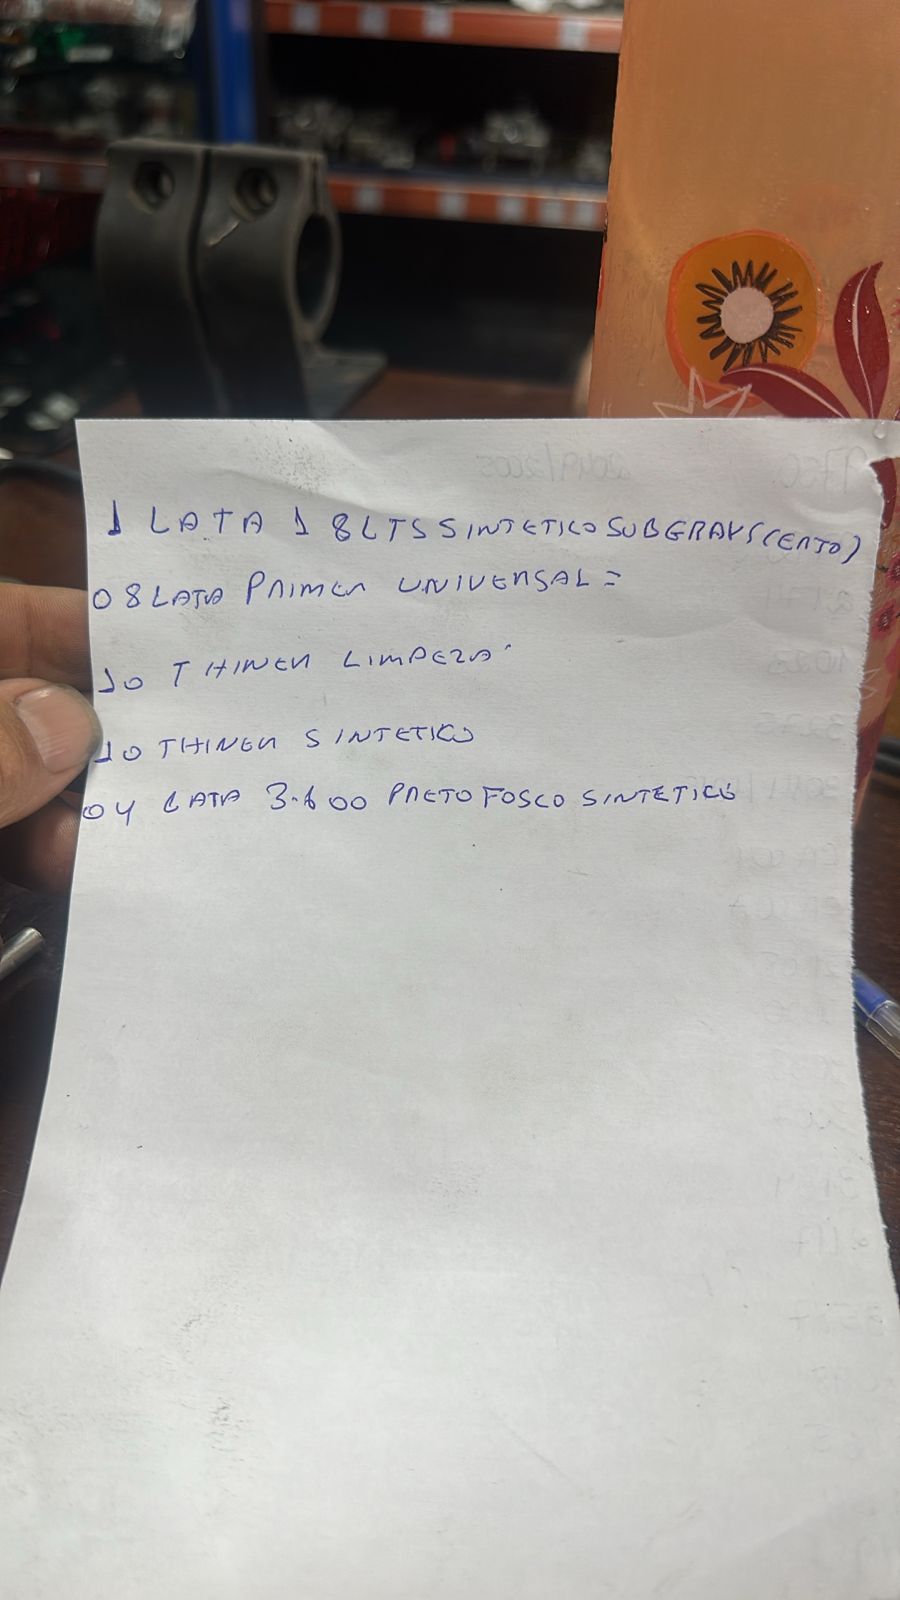 1 LATA 18LTS SINTETICO SUBGRAVS(CENTO)
08 LATA PRIMER UNIVERSAL =
10 THINER LIMPEZA
10 THINER SINTETICO
04 LATA 3.600 PRETO FOSCO SINTETICO